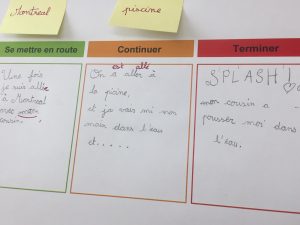 Montreal
piscine
Se mettre en route
Continuer
Terminer
Une fois
je suis allée
à Montreal
avec notre
cousin.
est allé
On a aller à
la picine,
et je vais mi mon
mais dans l'eau
et.....
SPLASH!
mon cousin a
pousser moi dans
l'eau.